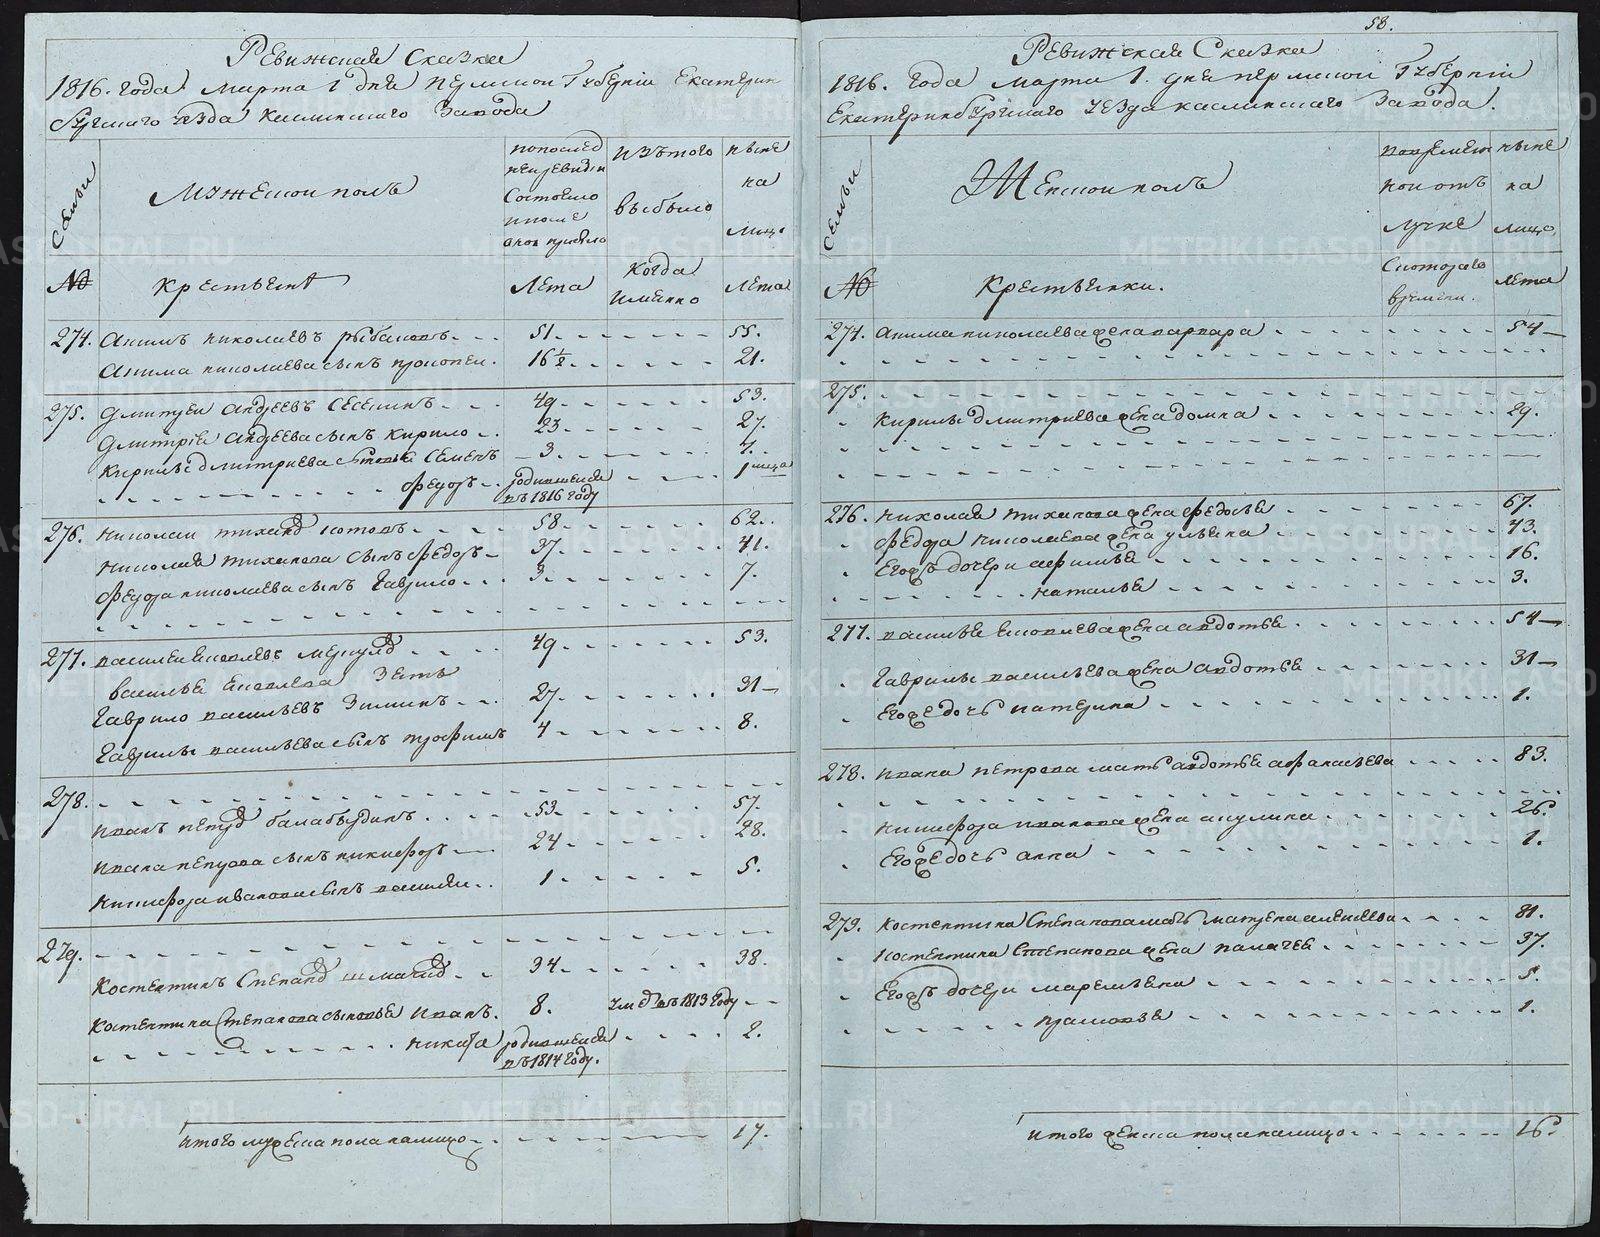 Ревижская Сказка
1816. года марта 1 дня Пермской Губерніи Екатерин
бургского уезда Каслинского Завода
Семьи
Мужеской полъ
по последней ревизіи состояло и после оной прибыло
изъ того выбыло
ныне на лицо
№
Крестьяня
Лета
Когда имянно
Лета
274. Акимъ Николаевъ Рыбаковъ 51. 55.
Акима Николаева сынъ Прокопеи. 16½ 21.
275. Дмитреи Андреевъ Сесекинъ 49 53.
Дмитрія Андреева сынъ Кирило 23 27.
Кирилы Дмитриева сыновья Семенъ 3. 7.
Федоръ родившейся въ 1816 году 1
276. Николаи Тихановъ Котовъ 58. 62.
Николая Тиханова сынъ Федоръ 37. 41.
Федора Николаева сынъ Гаврило 3. 7.
277. Василеи Яковлевъ 49 53.
Василья Яковлева Зять
Гаврило Васильевъ Зиминъ 27. 31
Гаврилы Васильева сынъ Трофимъ 4 8.
278.
Иванъ Петровъ Балабурдинъ 53. 57.
Ивана Петрова сынъ Никифоръ 24 28.
Никифора Иванова сынъ Василеи 1. 5.
279.
Костентинъ Степановъ Шмаковъ 34 38.
Костентина Степанова сыновья Иванъ. 8. въ 1813 году
Никита родившейся въ 1814 году. 2.
итого мужеска пола налицо 17.
58.
Ревижская Сказка
1816. года марта 1. дня Пермской Губерніи
Екатеринбургского уезда Каслинского Завода.
Семьи
Женской полъ
во временной отлучке
ныне на лицо
№
Крестьянки.
С которого времени.
Лета
274. Акима Николаева жена Варвара 54
275.
Кирилы Дмитриева жена Домна 29.
276. Николая Тиханова жена Федосья 67.
Федора Николаева жена Ульяна 43.
Егожъ дочери Афимья 16.
Наталья 3.
277. Василья Яковлева жена Авдотья 54
Гаврилы Васильева жена Авдотья 31
Егоже дочь Катерина 1.
278. Ивана Петрова мать Авдотья Афанасьева 83.
Никифора Иванова жена Акулина 26.
Егоже дочь Анна 1.
279. Костентина Степанова мать Матрена Алексеева 81.
Костентина Степанова жена Палагея 37.
Егожъ дочери Маремьяна 5.
Прасковья 1.
итого женска пола налицо 16.